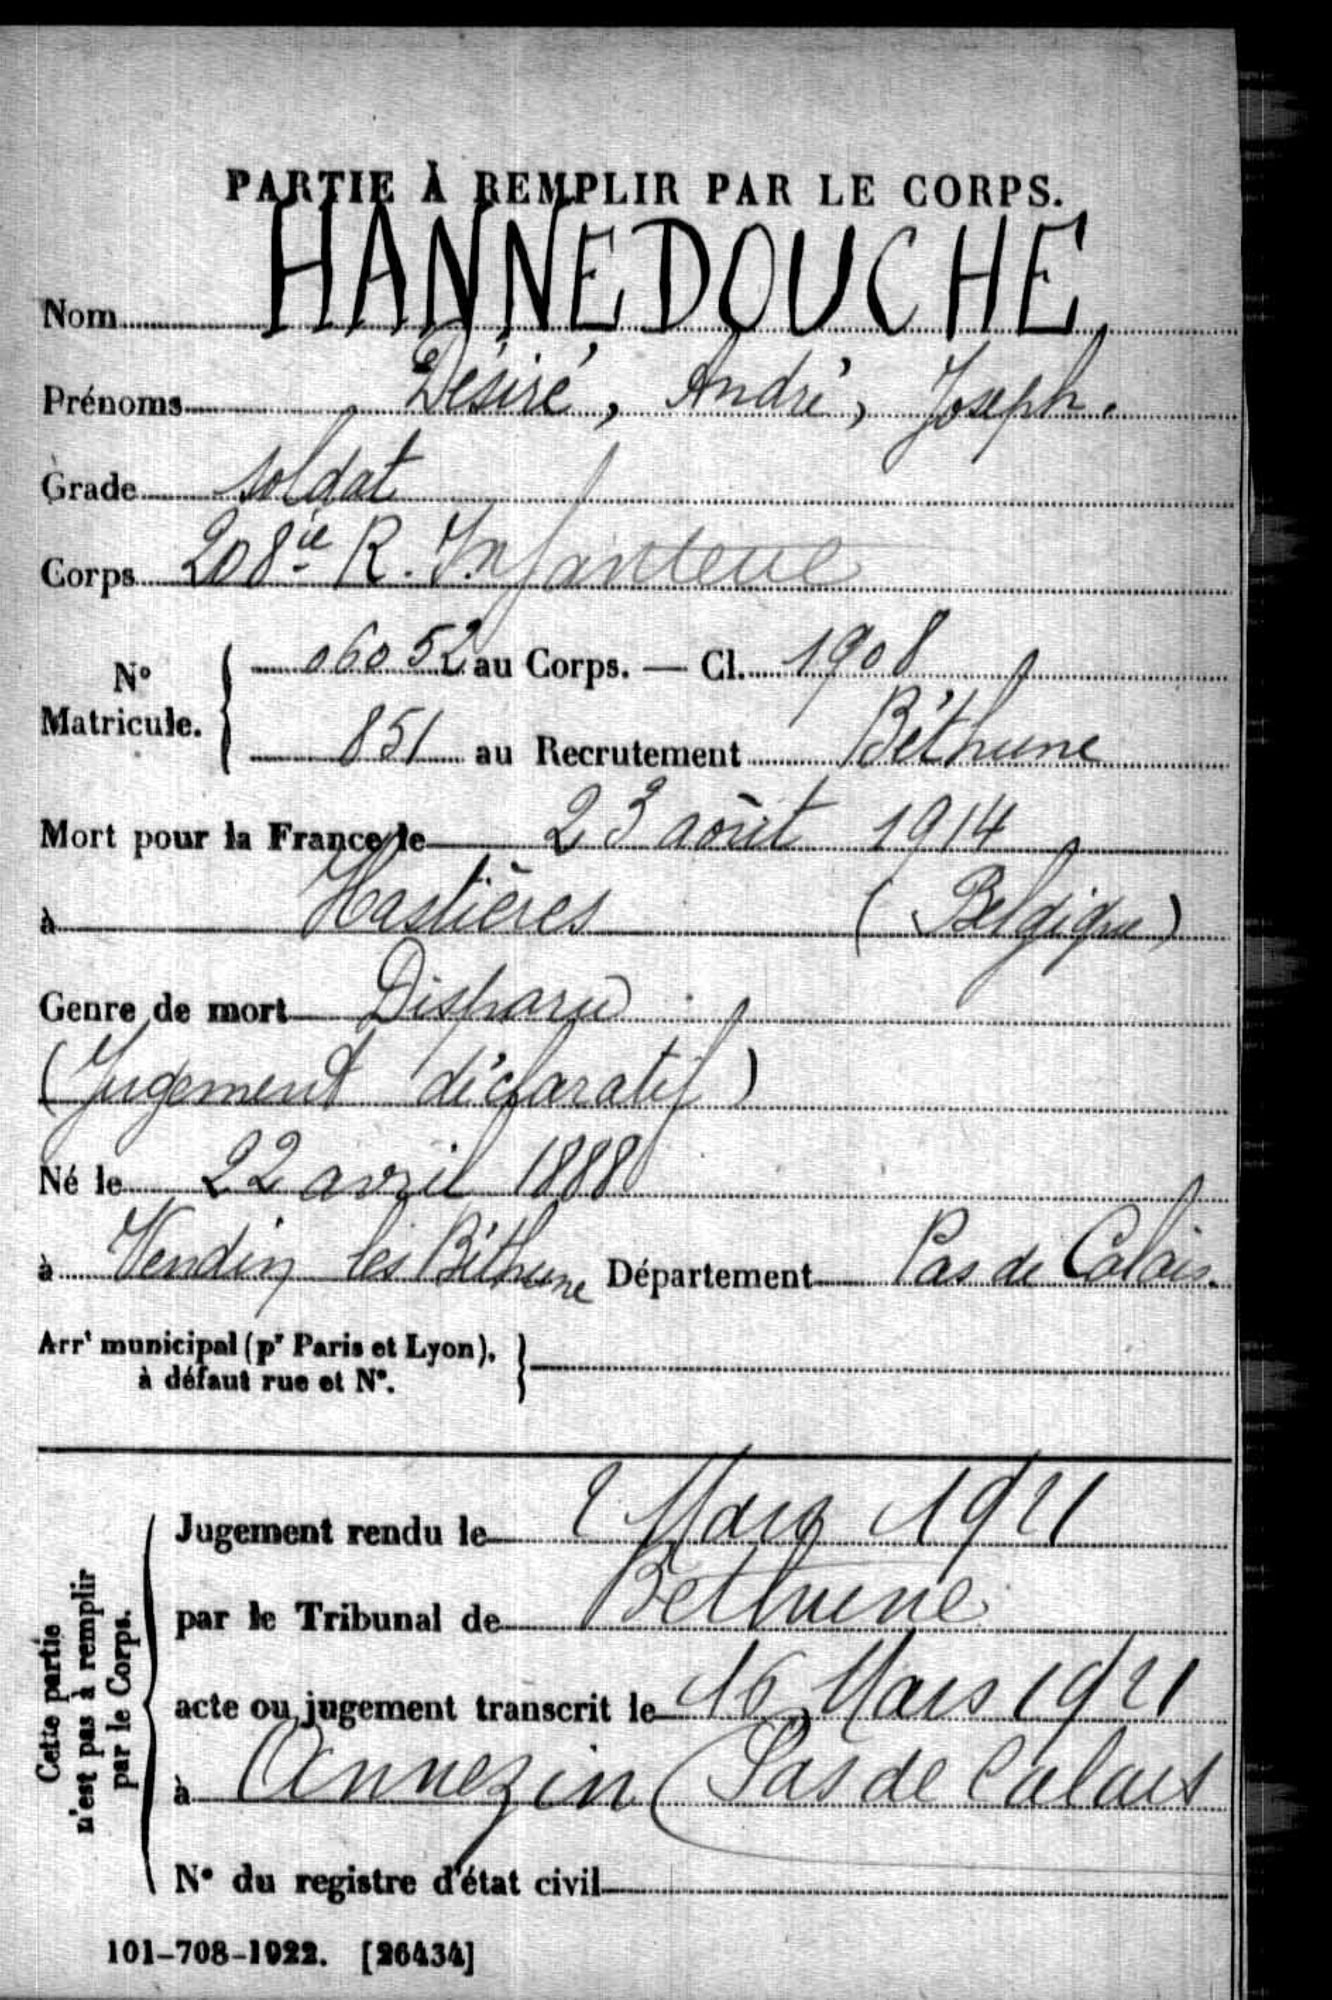 PARTIE À REMPLIR PAR LE CORPS.
Nom HANNEDOUCHE
Prénoms Désiré, André, Joseph.
Grade soldat
Corps 208ie R. Infanterie
N° Matricule. 06052 au Corps. — Cl. 1908
851 au Recrutement Béthune
Mort pour la France le 23 août 1914
à Hastières (Belgique)
Genre de mort Disparu
(Jugement déclaratif)
Né le 22 avril 1888
à Vendin les Béthune Département Pas de Calais.
Arrt municipal (pr Paris et Lyon),
à défaut rue et N°.
Cette partie
n'est pas à remplir
par le Corps.
Jugement rendu le 2 Mars 1921
par le Tribunal de Béthune
acte ou jugement transcrit le 16 Mars 1921
à Annezin (Pas de Calais
N° du registre d'état civil
101-708-1922. [26434]